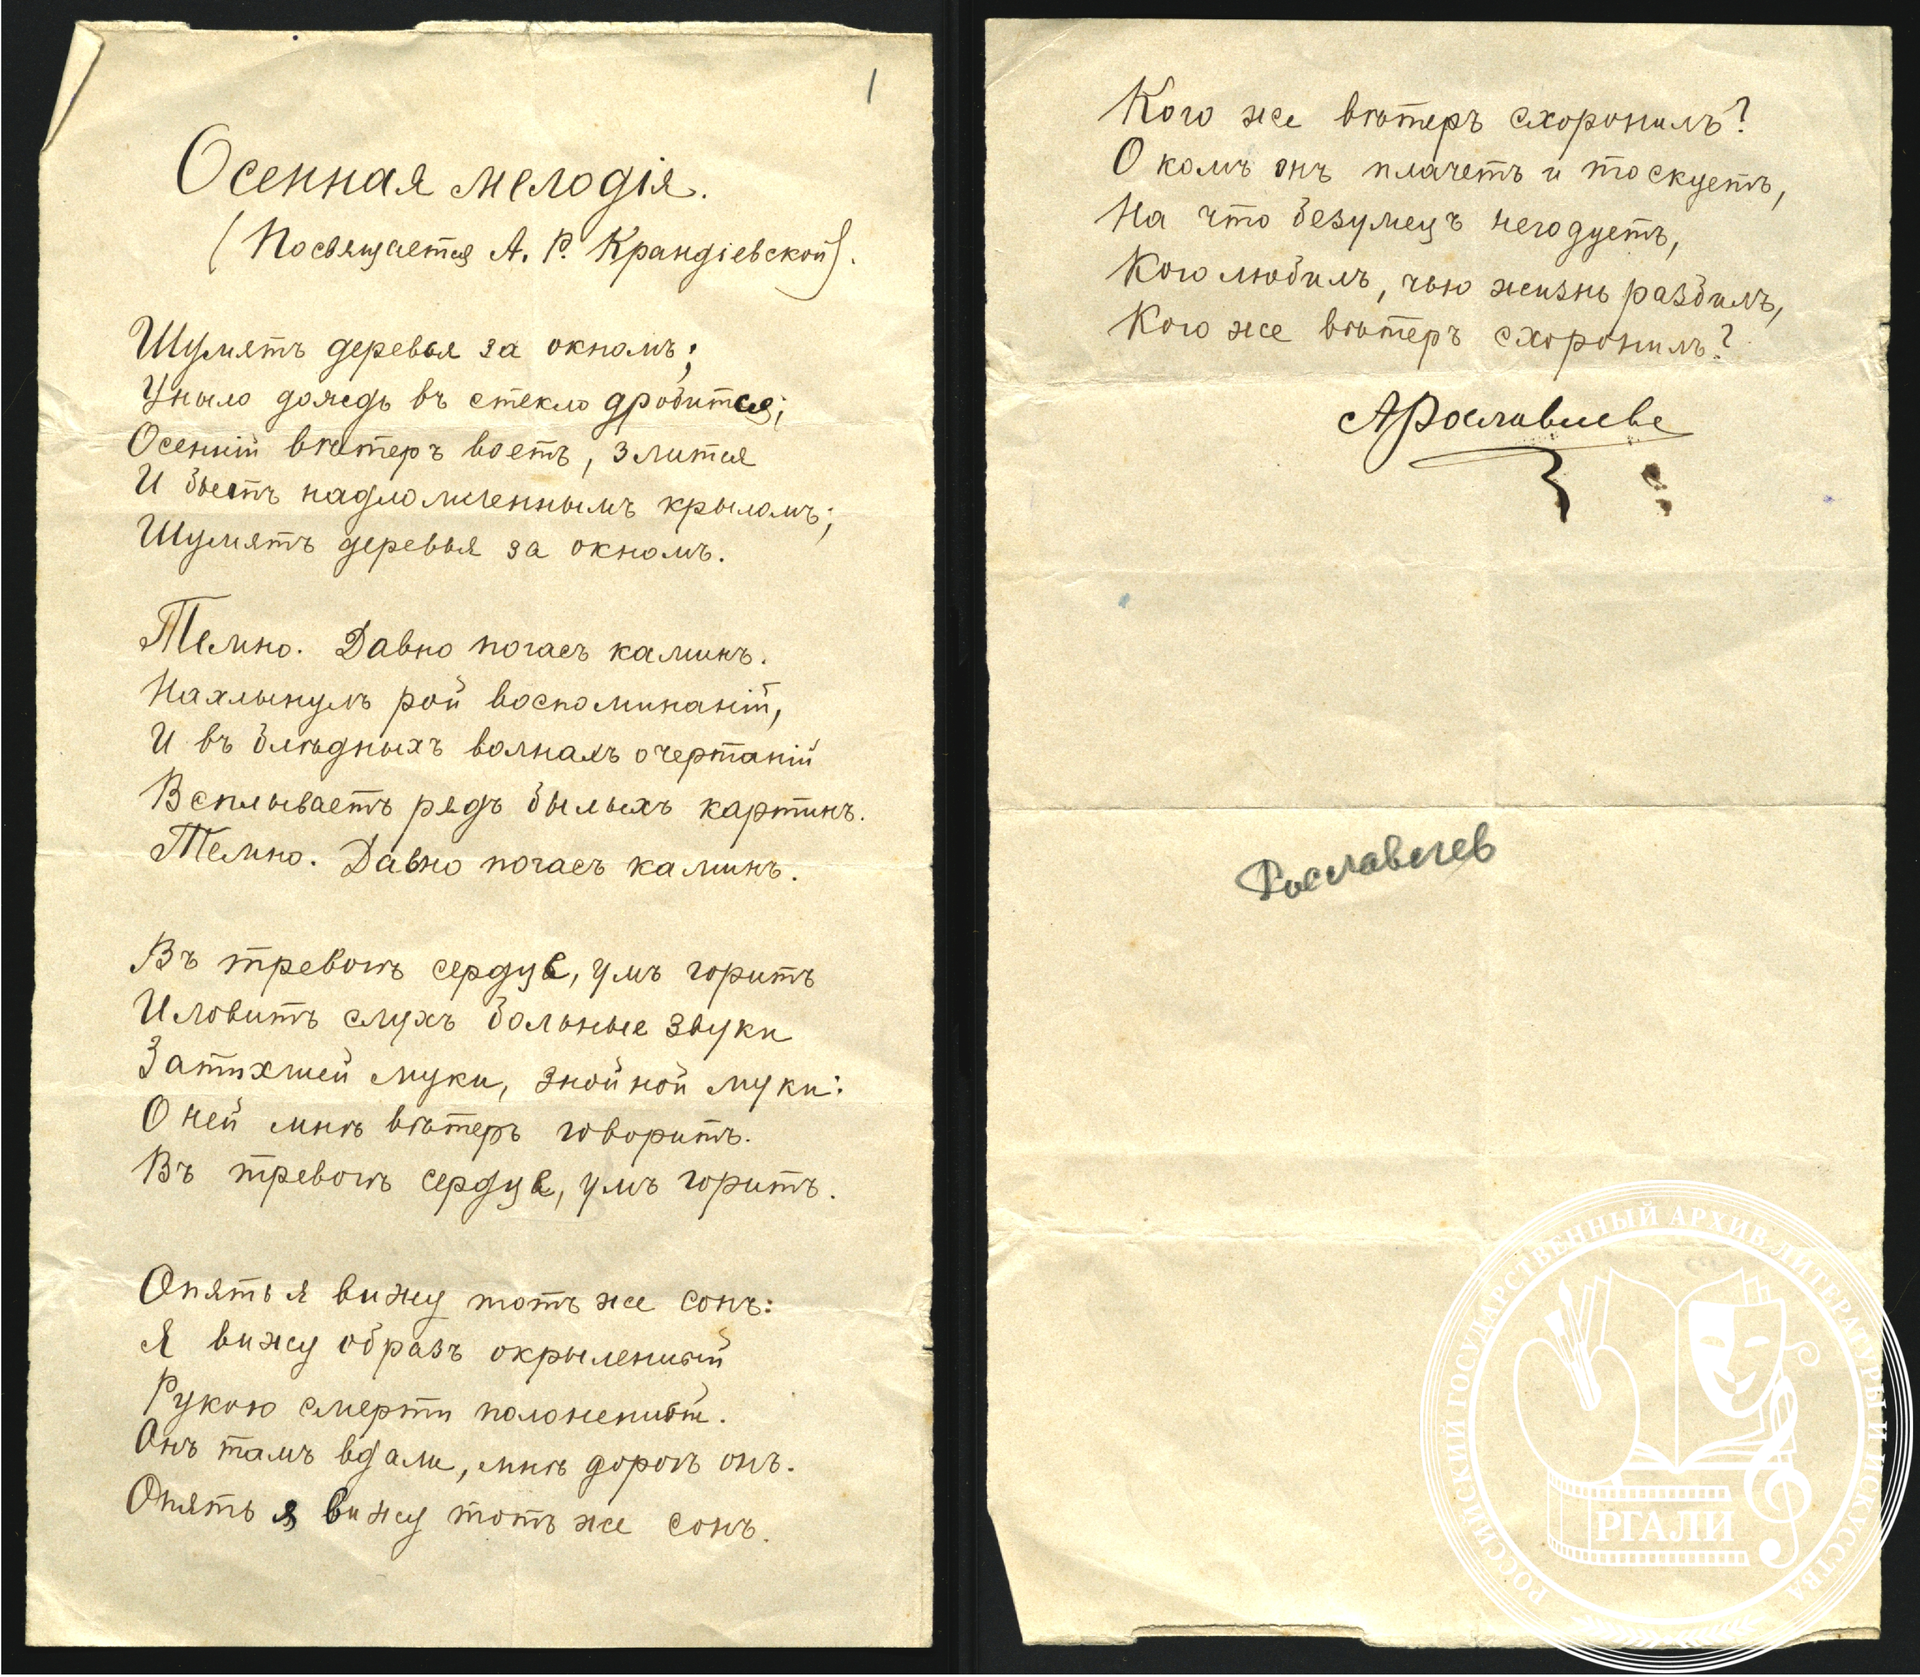 1
Осенная мелодія.
(Посвящается А. Р. Крандіевской).
Шумятъ деревья за окномъ;
Уныло дождь въ стекло дробится;
Осенній вѣтеръ воетъ, злится
И бьетъ надломленнымъ крыломъ;
Шумятъ деревья за окномъ.
Темно. Давно погасъ каминъ.
Нахлынулъ рой воспоминаній,
И въ блѣдныхъ волнахъ очертаній
Всплываетъ рядъ былыхъ картинъ.
Темно. Давно погасъ каминъ.
Въ тревогѣ сердце, умъ горитъ
И ловитъ слухъ больные звуки
Затихшей муки, знойной муки:
О ней мнѣ вѣтеръ говоритъ.
Въ тревогѣ сердце, умъ горитъ.
Опять я вижу тотъ же сонъ:
Я вижу образъ окрыленный
Рукою смерти полоненный.
Онъ тамъ вдали, мнѣ дорогъ онъ.
Опять я вижу тотъ же сонъ.
Кого же вѣтеръ схоронилъ?
О комъ онъ плачетъ и тоскуетъ,
На что безумецъ негодуетъ,
Кого любилъ, чью жизнь разбилъ,
Кого же вѣтеръ схоронилъ?
А Рославлевъ
Рославлев
РОССИЙСКИЙ ГОСУДАРСТВЕННЫЙ АРХИВ ЛИТЕРАТУРЫ И ИСКУССТВА
РГАЛИ